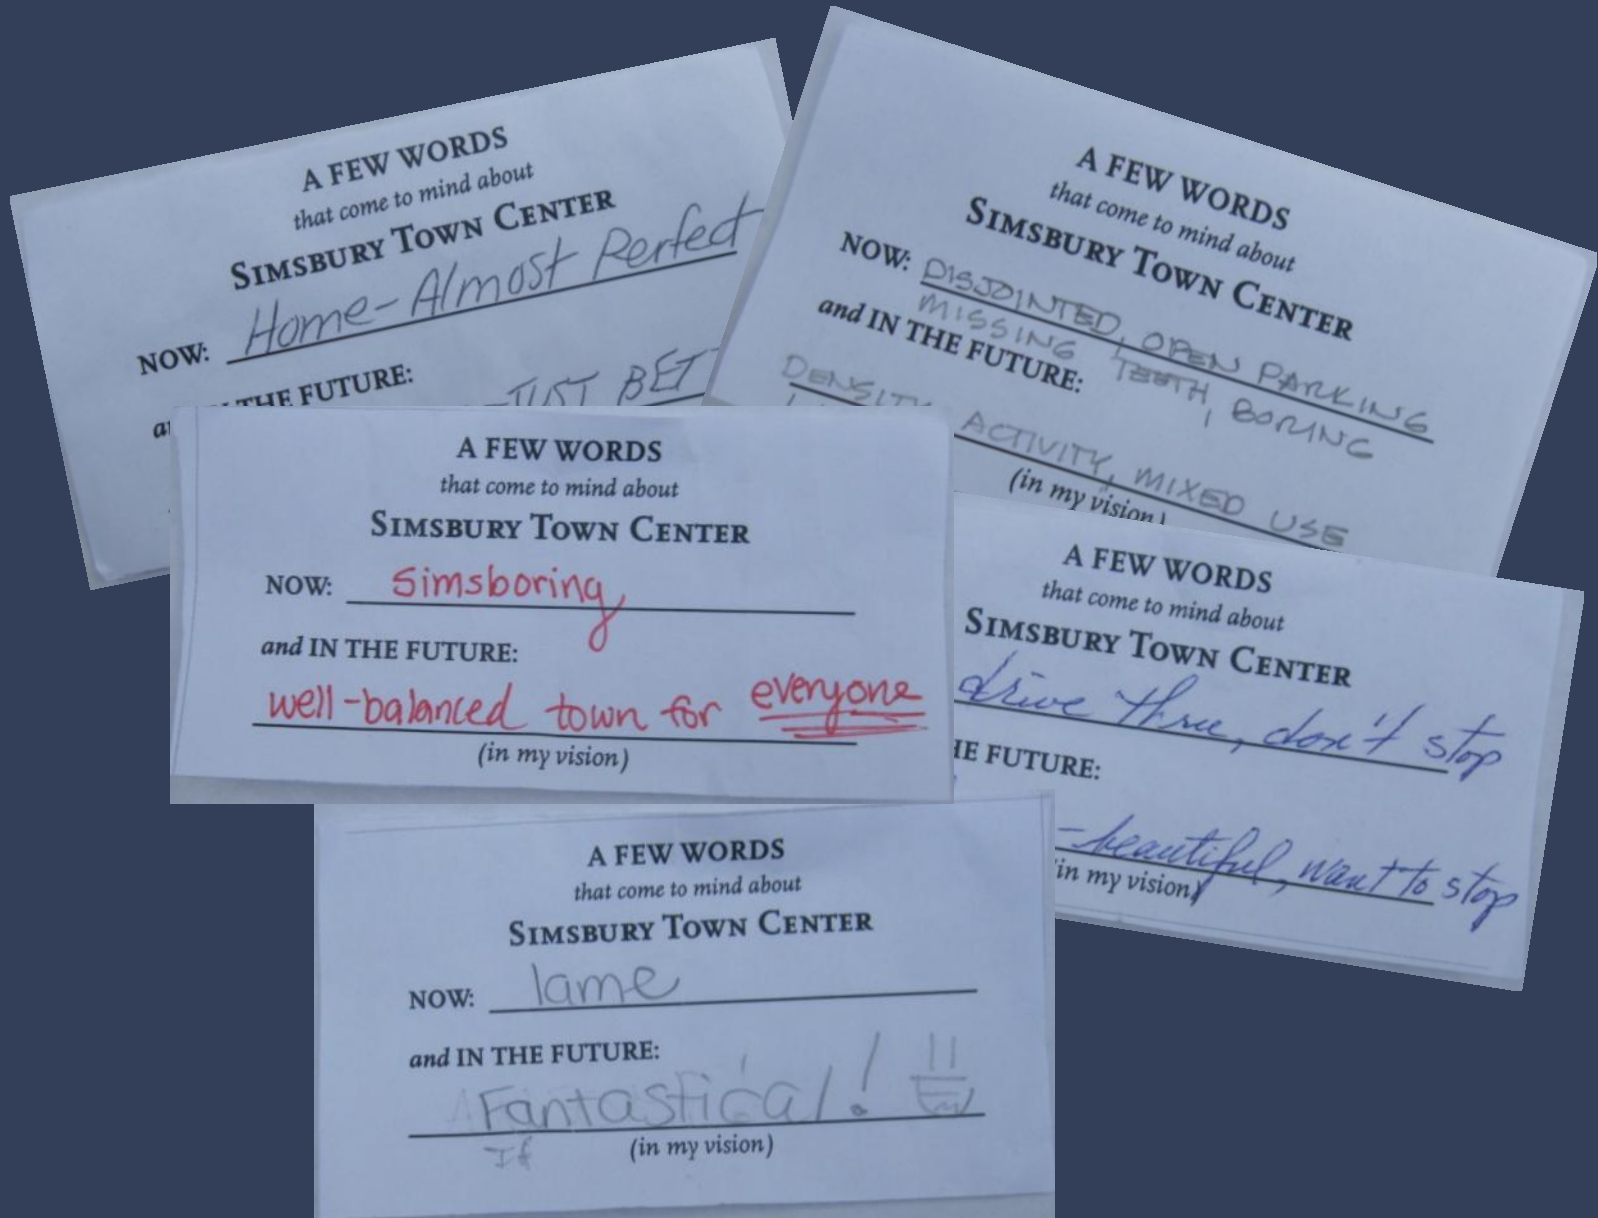 A FEW WORDS
that come to mind about
SIMSBURY TOWN CENTER
NOW: Home-Almost Perfect
THE FUTURE:
JUST BET
A FEW WORDS
that come to mind about
SIMSBURY TOWN CENTER
NOW: DISJOINTED, OPEN PARKING
MISSING TEETH, BORING
and IN THE FUTURE:
DENSITY, ACTIVITY, MIXED USE
(in my vision)
A FEW WORDS
that come to mind about
SIMSBURY TOWN CENTER
NOW: simsboring
and IN THE FUTURE:
well-balanced town for everyone
(in my vision)
A FEW WORDS
that come to mind about
SIMSBURY TOWN CENTER
drive thru, don't stop
FUTURE:
-beautiful, want to stop
in my vision)
A FEW WORDS
that come to mind about
SIMSBURY TOWN CENTER
NOW: lame
and IN THE FUTURE:
Fantastical!
If (in my vision)